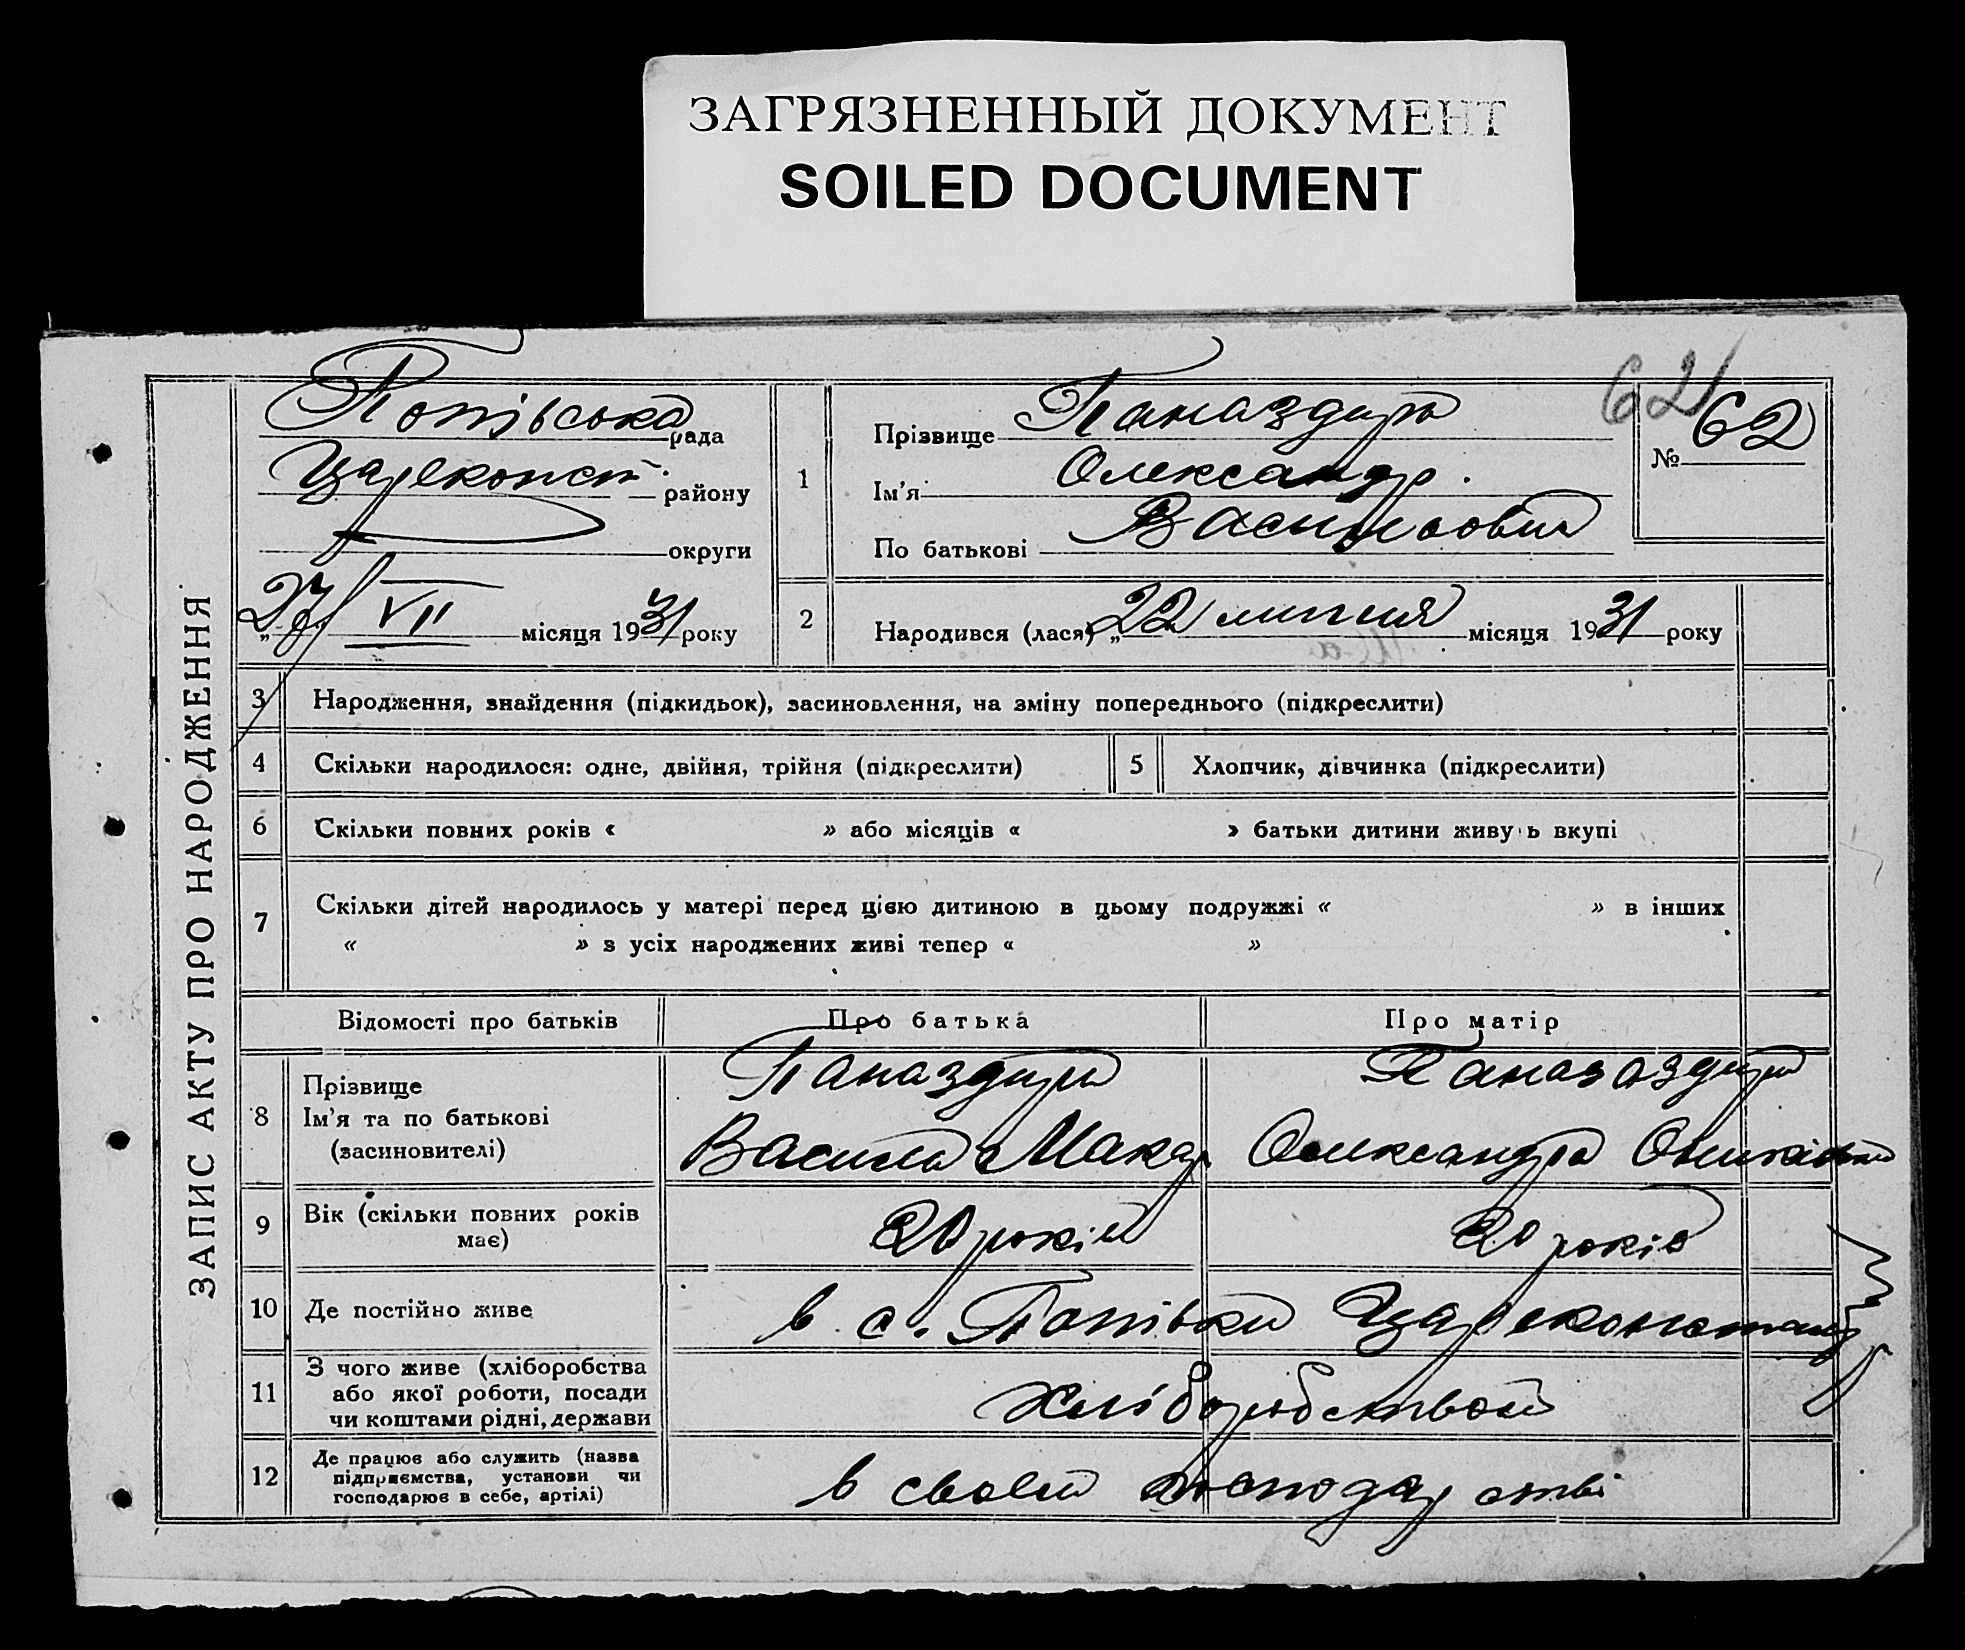 ЗАГРЯЗНЕННЫЙ ДОКУМЕНТ
SOILED DOCUMENT
62
ЗАПИС АКТУ ПРО НАРОДЖЕННЯ
Попівська рада
Цареконст. району
округи
„27 VII місяця 1931 року
1
Прізвище Паназдирь
Ім'я Олександр.
По батькові Васильович
№ 62
2
Народився (лася) „22 липня місяця 1931 року
3 Народження, знайдення (підкидьок), засиновлення, на зміну попереднього (підкреслити)
4 Скільки народилося: одне, двійня, трійня (підкреслити)
5 Хлопчик, дівчинка (підкреслити)
6 Скільки повних років « » або місяців « » батьки дитини живу ь вкупі
7 Скільки дітей народилось у матері перед цією дитиною в цьому подружжі « » в інших
« » з усіх народжених живі тепер « »
Відомості про батьків Про батька Про матір
8 Прізвище
Ім'я та по батькові
(засиновителі)
Паназдирь
Василь Макар
Олександра
9 Вік (скільки повних років
має)
20 років 20 років
10 Де постійно живе в с. Попівки Цареконстант
11 З чого живе (хліборобства
або якої роботи, посади
чи коштами рідні, держави
хліборобством
12 Де працює або служить (назва
підприємства, установи чи
господарює в себе, артілі)
в своем господарстві